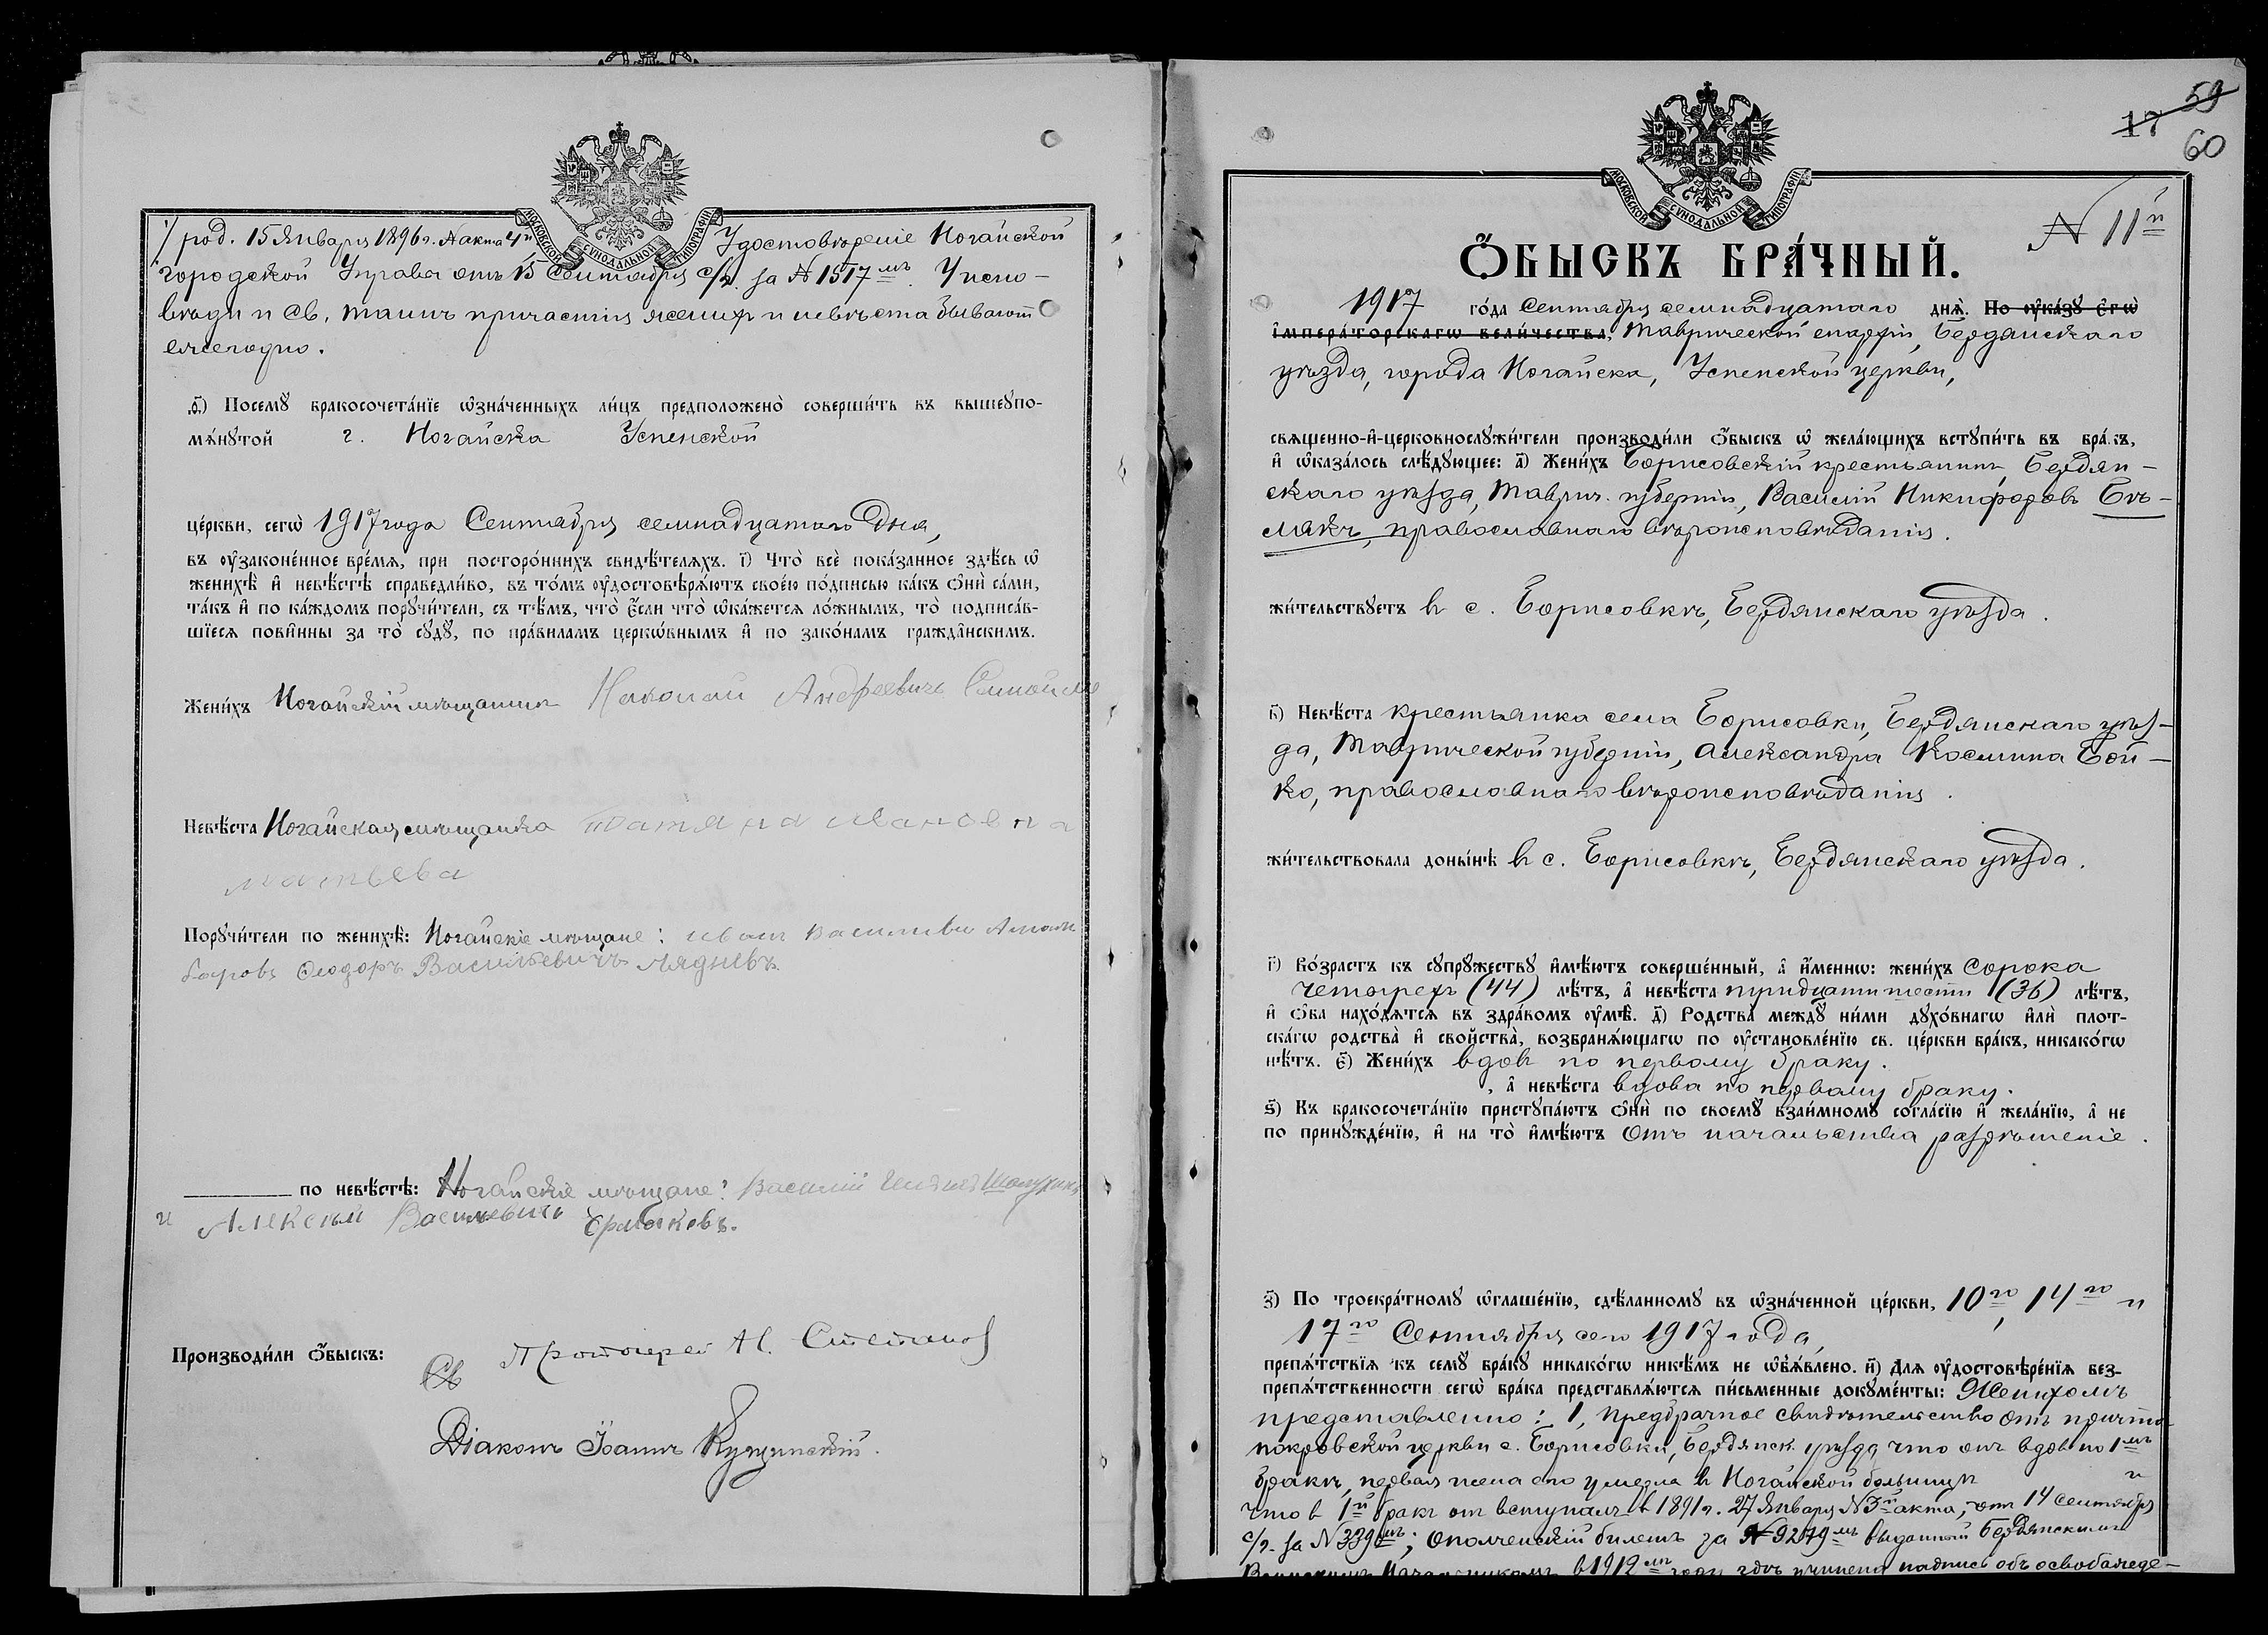 МОСКОВСКОЙ СУНОДАЛЬНОЙ ТИПОГРАФІИ
1/ род. 15 Января 1896 г. N акта 4й Удостовѣреніе Ногайской
городской Управы отъ 15 Сентября с/г. за N 1517мъ. У испо-
вѣди и св. таинъ причастія женихъ и невѣста бываютъ
ежегодно.
.ѳ҃.) Посемꙋ̀ бракосочета́нїе ѡ҆зна́ченныхъ ли́цъ предположено̀ соверши́ть въ вышеꙋпо-
мѧ́нꙋтой г. Ногайска Успенской
це́ркви, сегѡ̀ 1917 года Сентября семнадцатаго дня,
въ ᲂу҆зако́ненное вре́мѧ, при посторо́ннихъ свидѣ́телѧхъ. і҃) Что̀ всѐ пока́занное здѣ́сь ѡ҆
женихѣ̀ и҆ невѣ́стѣ справедли́во, въ то́мъ ᲂу҆достовѣрѧ́ютъ свое́ю по́дписью ка́къ ѻ҆нѝ са́ми,
та́къ и҆ по ка́ждомъ порꙋчи́тели, съ тѣ́мъ, что̀ є҆́сли что̀ ѡ҆ка́жетсѧ ло́жнымъ, то̀ подписа́в-
шїесѧ пови́нны за то̀ сꙋдꙋ̀, по пра́виламъ церко́внымъ и҆ по зако́намъ гражда́нскимъ.
Жени́хъ Ногайскій мѣщанинъ Николай Андреевичъ
Невѣ́ста Ногайская мѣщанка Татяна Ивановна
Порꙋчи́тели по женихѣ̀: Ногайскіе мѣщане: Иванъ Васильевъ
Ѳеодоръ Васильевичъ Лядневъ
по невѣ́стѣ: Ногайскіе мѣщане: Василій
и Алексѣй Васильевичъ Ермаковъ.
Производи́ли ѻ҆́быскъ: Протоіерей Н. Степанов
Діаконъ Іоаннъ Кущинскій.
59
17
60
МОСКОВСКОЙ СУНОДАЛЬНОЙ ТИПОГРАФІИ
N 11й
Ѻ҆́БЫСКЪ БРА́ЧНЫЙ.
1917 го́да Сентября семнадцатаго днѧ̀. По ᲂу҆ка́зꙋ є҆гѡ̀
і҆мпера́торскагѡ вели́чества, Таврической епархіи, Бердянскаго
уѣзда, города Ногайска, Успенской церкви,
свѧщенно-и҆-церковнослꙋжи́тели производи́ли ѻ҆́быскъ ѡ҆ жела́ющихъ встꙋпи́ть въ бра́къ,
и҆ ѡ҆каза́лось слѣ́дꙋющее: а҃) Жени́хъ Борисовскій крестьянинъ, Бердян-
скаго уѣзда, Таврич. губерніи, Василій Никифоровъ Бѣ-
макъ, православнаго вѣроисповѣданія.
жи́тельствꙋетъ в с. Борисовкѣ, Бердянскаго уѣзда.
в҃) Невѣ́ста крестьянка села Борисовки, Бердянскаго уѣз-
да, Таврической губерніи, Александра Космина Бой-
ко, православнаго вѣроисповѣданія.
жи́тельствовала доны́нѣ в с. Борисовкѣ, Бердянскаго уѣзда.
г҃) Во́зрастъ къ сꙋпрꙋ́жествꙋ и҆мѣ́ютъ соверше́нный, а҆ и҆́меннѡ: жени́хъ сорока
четырехъ (44) лѣ́тъ, а҆ невѣ́ста тридцати шести (36) лѣ́тъ,
и҆ ѻ҆́ба нахо́дѧтсѧ въ здра́вомъ ᲂу҆мѣ̀. д҃) Родства̀ междꙋ̀ ни́ми дꙋхо́внагѡ и҆лѝ плот-
ска́гѡ родства̀ и҆ свойства̀, возбранѧ́ющагѡ по ᲂу҆становле́нїю св. це́ркви бра́къ, никако́гѡ
нѣ́тъ. є҃) Жени́хъ вдовъ по первому браку.
, а҆ невѣ́ста вдова по первому браку.
ѕ҃) Къ бракосочета́нїю пристꙋпа́ютъ ѻ҆нѝ по своемꙋ̀ взаи́мномꙋ согла́сїю и҆ жела́нїю, а҆ не
по принꙋжде́нїю, и҆ на то̀ и҆мѣ́ютъ отъ начальства разрѣшеніе.
з҃) По троекра́тномꙋ ѡ҆глаше́нїю, сдѣ́ланномꙋ въ ѡ҆зна́ченной це́ркви, 10го, 14го и
17го Сентября сего 1917 года,
препѧ́тствїѧ къ семꙋ̀ бра́кꙋ никако́гѡ никѣ́мъ не ѡ҆б̾ѧ́влено. и҃) Длѧ ᲂу҆достовѣре́нїѧ без-
препѧ́тственности сегѡ̀ бра́ка представлѧ́ютсѧ пи́сьменные докꙋме́нты: Женихомъ
представлено: 1, предбрачное свидѣтельство отъ причта
покровской церкви с. Борисовки, Бердянск. уѣзда, что онъ вдовъ по 1мъ
бракѣ, первая жена его умерла в Ногайской больницѣ и
что в 1й бракъ онъ вступалъ в 1891 г. 27 Января N 3й акта, отъ 14 сентября
с/г. за N 339мъ; Ополченскій билетъ за N 9279мъ выданный Бердянскимъ
Воинскимъ Начальникомъ в 1912мъ году, гдѣ учинена надпись объ освобожде-